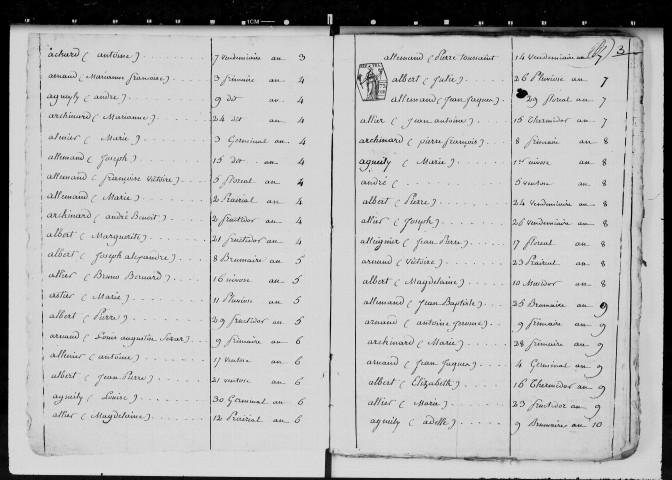 achard (antoine) 7 vendemiaire an 3
arnaud (Marianne françoise) 3 frimaire an 4
aguilly (andré) 9 dit an 4
archinard (Marianne) 24 dit an 4
almier (Marie) 3 Germinal an 4
allemand (Joseph) 15 dit an 4
allemand (françoise victoire) 5 floreal an 4
allemand (Marie) 2 Prairial an 4
archinard (andré Benoit) 2 fructidor an 4
albert (Marguerite) 21 fructidor an 4
albert (Joseph alexandre) 8 Brumaire an 5
allier (Bruno Bernard) 16 nivose an 5
astier (Marie) 11 Pluviose an 5
albert (Pierre) 29 fructidor an 5
arnaud (Louis augustin) 9 frimaire an 6
allenier (antoine) 17 ventose an 6
albert (Jean Pierre) 21 ventose an 6
aguilly (Louise) 30 Germinal an 6
allier (Magdelaine) 12 Prairial an 6
3
allemand (Pierre toussaint 14 vendemiaire an 7
albert (Julie) 26 Pluviose an 7
allemand (Jean Jaques) 29 floreal an 7
allier (Jean antoine) 15 Thermidor an 7
archinard (pierre françois) 8 frimaire an 8
aguilly (Marie) 1er nivose an 8
andré ( 5 ventose an 8
albert (Pierre) 24 vendemiaire an 8
allier (Joseph) 26 vendemiaire an 8
alleignier (Jean Pierre) 17 floreal an 8
arnaud (victoire) 23 Prairial an 8
albert (Magdelaine) 10 Messidor an 8
allemand (Jean Baptiste) 25 Brumaire an 9
arnaud (antoine) 9 frimaire an 9
archinard (Marie) 28 frimaire an 9
arnaud (Jean Jaques) 4 Germinal an 9
albert (Elizabeth) 16 Thermidor an 9
allier (Marie) 23 fructidor an 9
aguilly (adelle) 9 Brumaire an 10